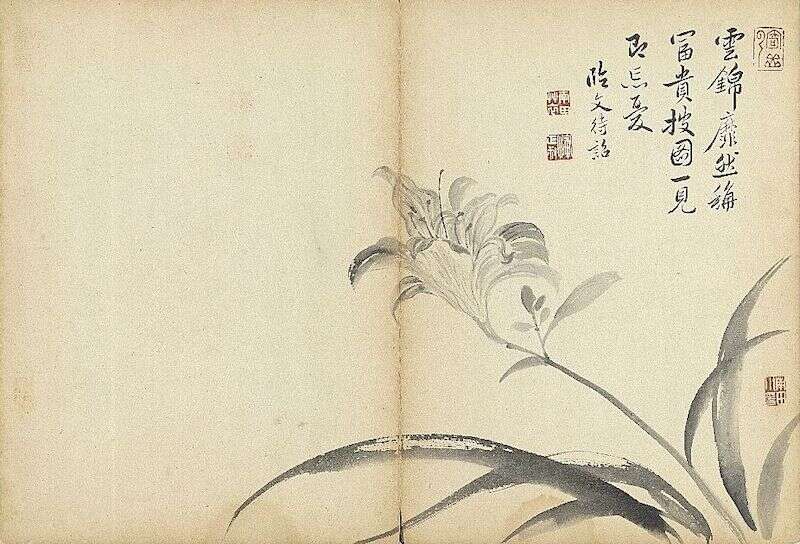 雲錦靡然稱
富貴披圖一見
即忘憂
臨文待詔